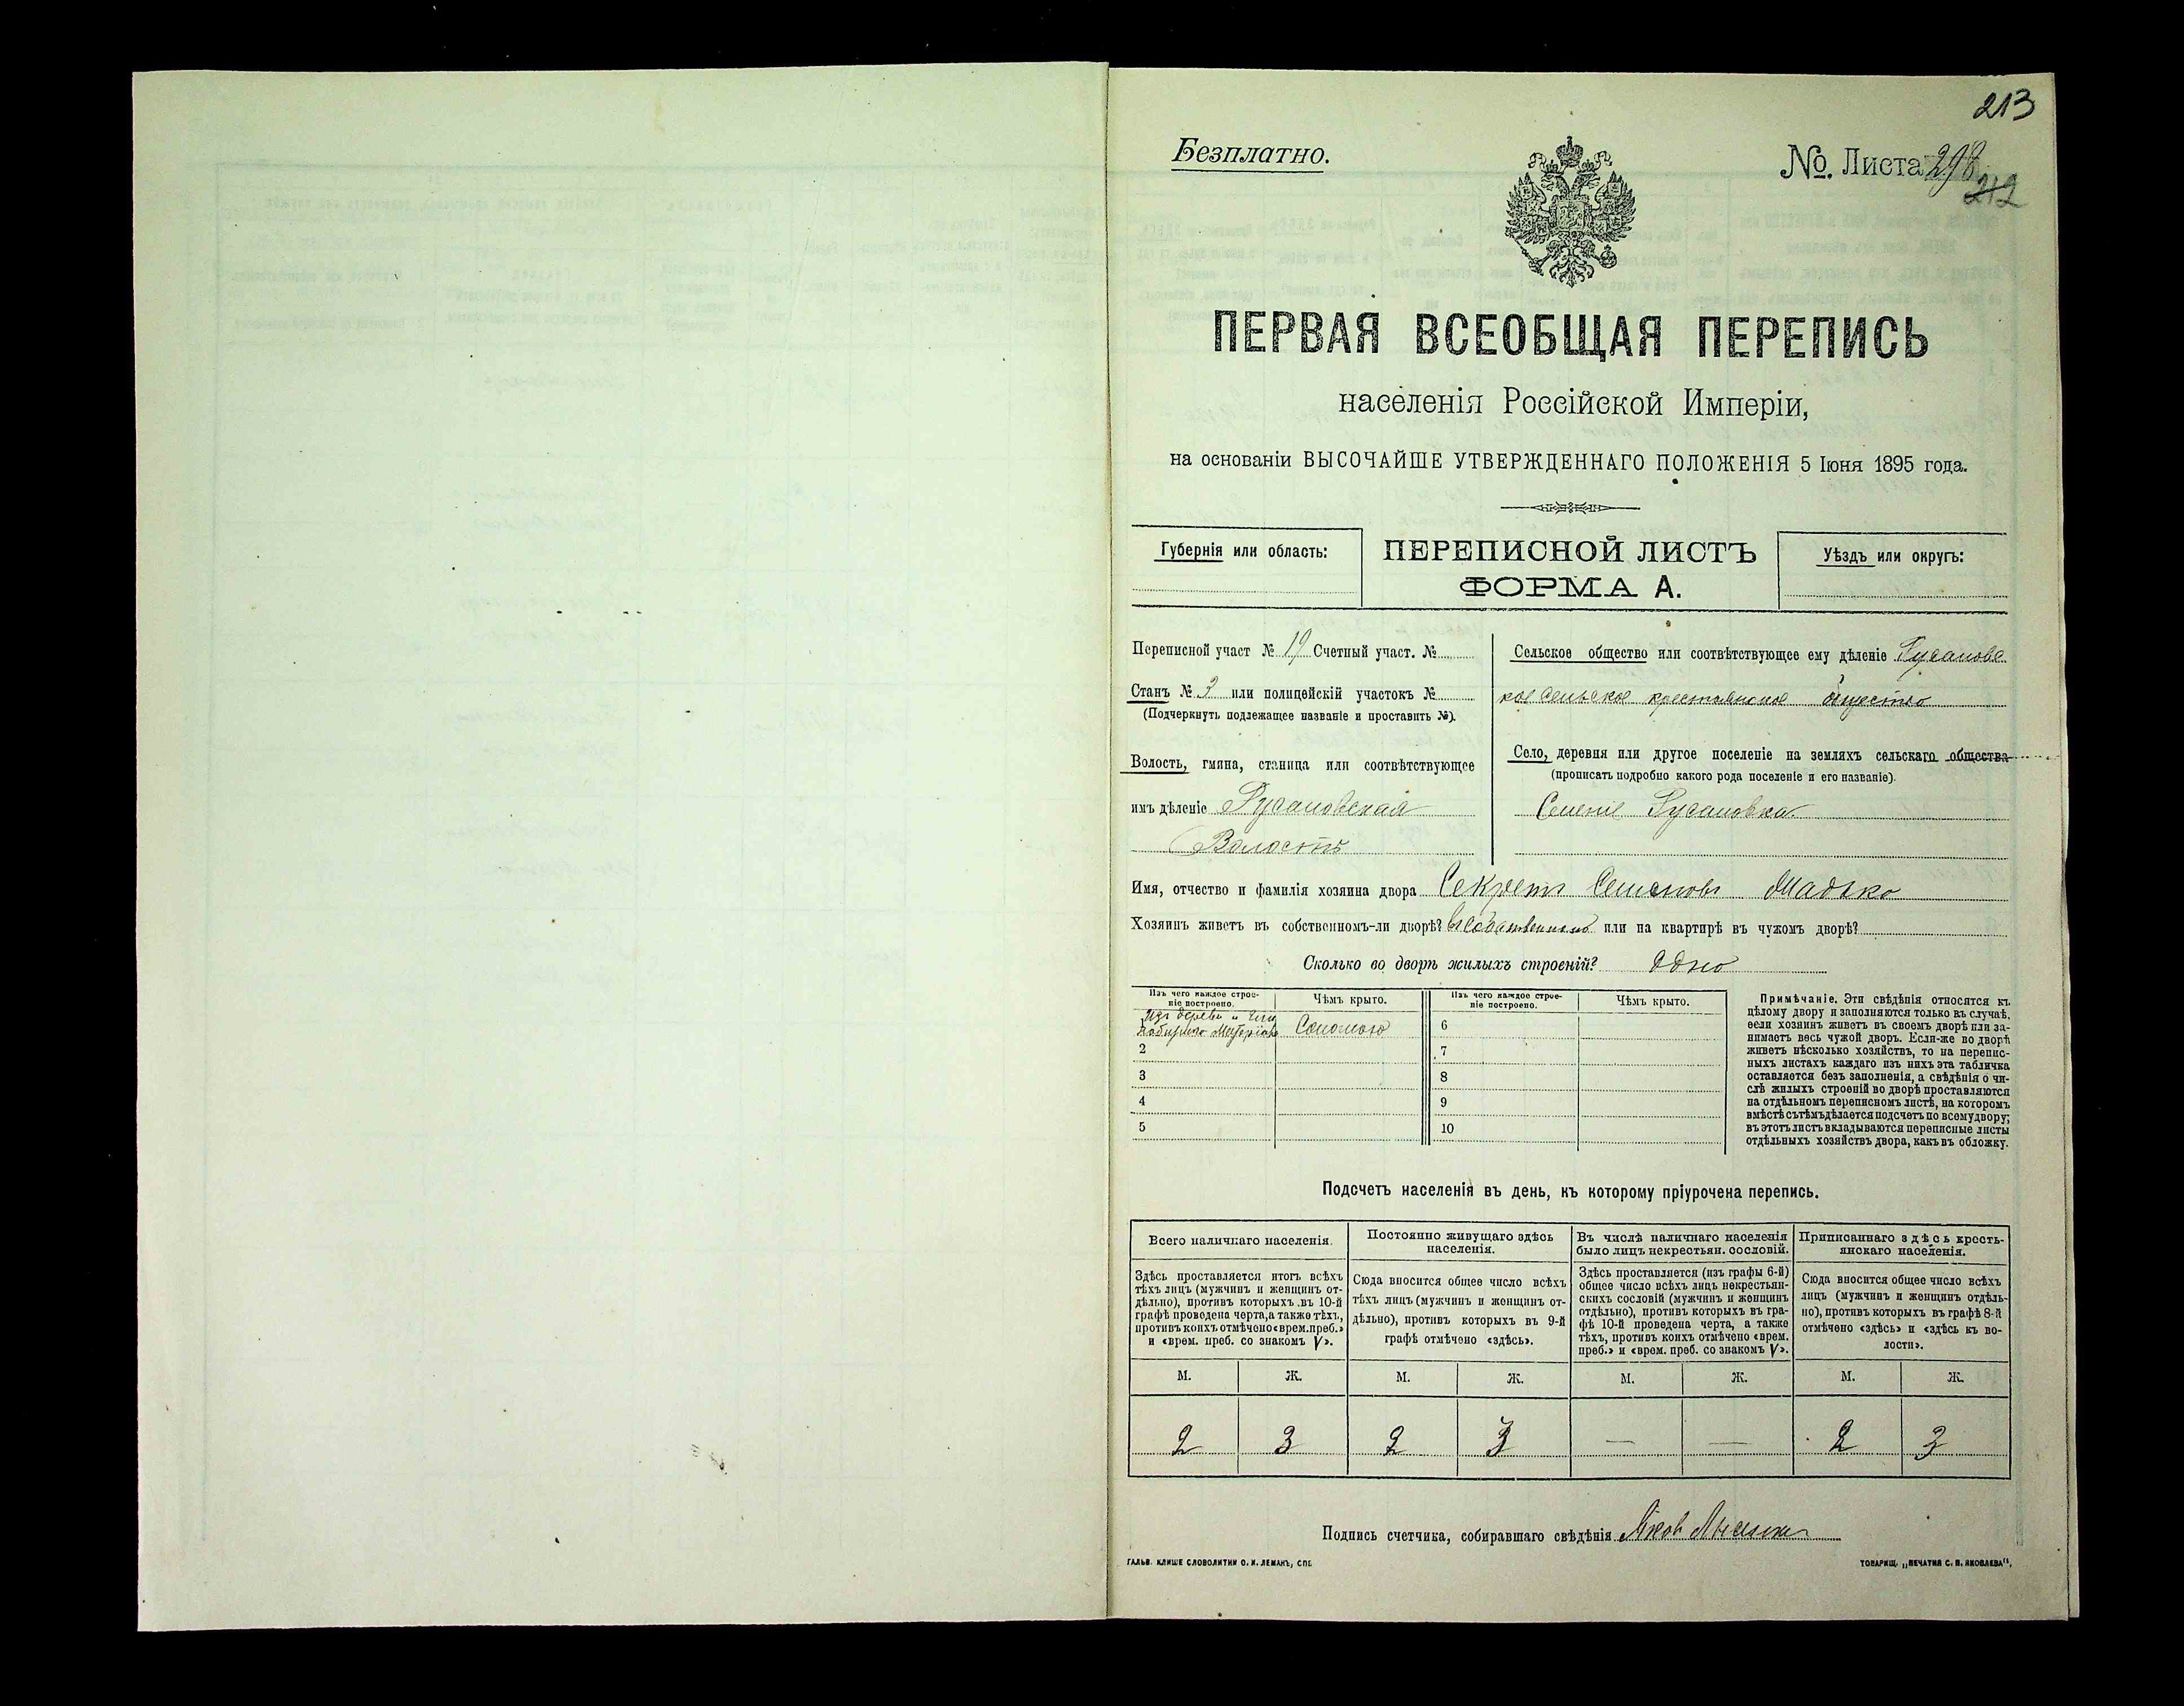 213
Безплатно.
№. Листа 298
212
ПЕРВАЯ ВСЕОБЩАЯ ПЕРЕПИСЬ
населенія Россійской Имперіи,
на основаніи ВЫСОЧАЙШЕ УТВЕРЖДЕННАГО ПОЛОЖЕНІЯ 5 Іюня 1895 года.
Губернія или область:
ПЕРЕПИСНОЙ ЛИСТЪ
ФОРМА А.
Уѣздъ или округъ:
Переписной участ № 19 Счетный участ. №
Станъ № 3 или полицейскій участокъ №
(Подчеркнуть подлежащее названіе и проставить №).
Волость, гмина, станица или соотвѣтствующее
имъ дѣленіе Русановская
Волость
Сельское общество или соотвѣтствующее ему дѣленіе Русановс
кое Сельское крестьянское общество
Село, деревня или другое поселеніе на земляхъ сельскаго общества
(прописать подробно какого рода поселеніе и его названіе).
Русановка
Имя, отчество и фамилія хозяина двора Секретъ Семеновъ Мадько
Хозяинъ живетъ въ собственномъ-ли дворѣ? въ собственномъ или на квартирѣ въ чужомъ дворѣ?
Сколько во дворѣ жилыхъ строеній? Одно
Изъ чего каждое строе-
ніе построено.
Чѣмъ крыто.
Изъ чего каждое строе-
ніе построено.
Чѣмъ крыто.
Изъ дерева и
Соломою
6
2
7
3
8
4
9
5
10
Примѣчаніе. Эти свѣдѣнія относятся къ
цѣлому двору и заполняются только въ случаѣ,
если хозяинъ живетъ въ своемъ дворѣ или за-
нимаетъ весь чужой дворъ. Если-же во дворѣ
живетъ нѣсколько хозяйствъ, то на перепис-
ныхъ листахъ каждаго изъ нихъ эта табличка
оставляется безъ заполненія, а свѣдѣнія о чи-
слѣ жилыхъ строеній во дворѣ проставляются
на отдѣльномъ переписномъ листѣ, на которомъ
вмѣстѣ съ тѣмъ дѣлается подсчетъ по всему двору;
въ этотъ листъ вкладываются переписные листы
отдѣльныхъ хозяйствъ двора, какъ въ обложку.
Подсчетъ населенія въ день, къ которому пріурочена перепись.
Всего наличнаго населенія.
Здѣсь проставляется итогъ всѣхъ
тѣхъ лицъ (мужчинъ и женщинъ от-
дѣльно), противъ которыхъ въ 10-й
графѣ проведена черта, а также тѣхъ,
противъ коихъ отмѣчено «врем. преб.»
и «врем. преб. со знакомъ V».
Постоянно живущаго здѣсь
населенія.
Сюда вносится общее число всѣхъ
тѣхъ лицъ (мужчинъ и женщинъ от-
дѣльно), противъ которыхъ въ 9-й
графѣ отмѣчено «здѣсь».
Въ числѣ наличнаго населенія
было лицъ некрестьян. сословій.
Здѣсь проставляется (изъ графы 6-й)
общее число всѣхъ лицъ некрестьян-
скихъ сословій (мужчинъ и женщинъ
отдѣльно), противъ которыхъ въ гра-
фѣ 10-й проведена черта, а также
тѣхъ, противъ коихъ отмѣчено «врем.
преб.» и «врем. преб. со знакомъ V».
Приписаннаго здѣсь кресть-
янскаго населенія.
Сюда вносится общее число всѣхъ
лицъ (мужчинъ и женщинъ отдѣль-
но), противъ которыхъ въ графѣ 8-й
отмѣчено «здѣсь» и «здѣсь къ во-
лости».
М. Ж. М. Ж. М. Ж. М. Ж.
2 3 2 3 — — 2 3
Подпись счетчика, собиравшаго свѣдѣнія Яковъ
ГАЛЬВ. КЛИШЕ СЛОВОЛИТНИ О. И. ЛЕМАНЪ, СПБ.
ТОВАРИЩ. „ПЕЧАТНЯ С. П. ЯКОВЛЕВА“,